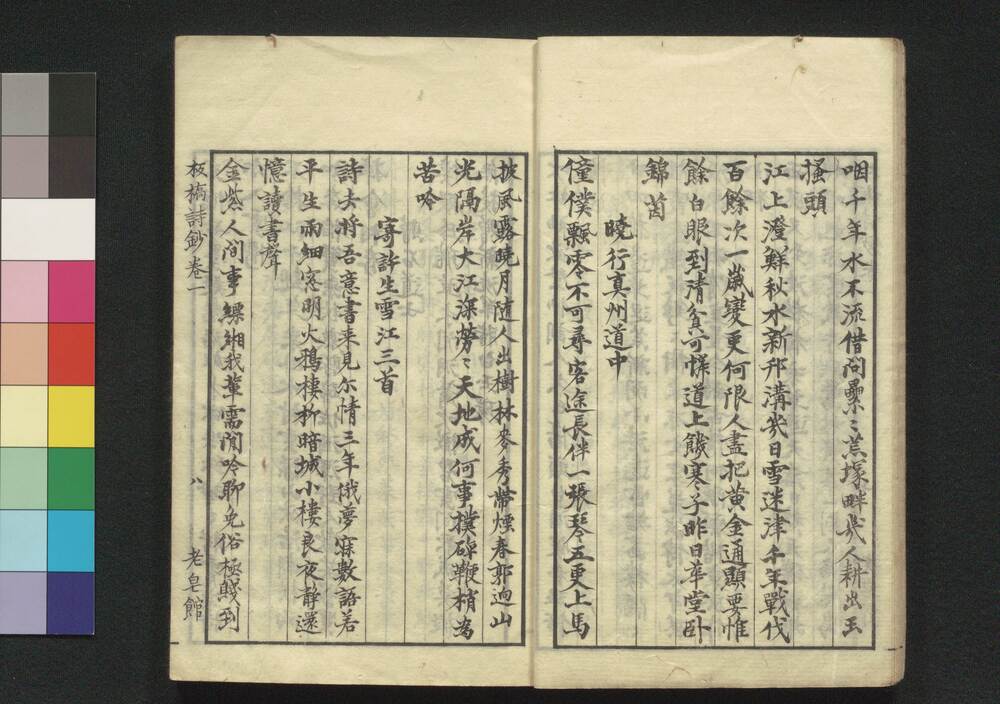 咽千年水不流借问纍〻荒塚畔幾人耕出玉
搔頭
江上澄鮮秋水新邗溝幾日雪迷津千年戰伐
百餘次一歲變更何限人盡把黃金通顯要惟
餘白眼到清貧可憐道上饑寒子昨日華堂卧
錦茵
曉行真州道中
僮僕飄零不可尋客途長伴一張琴五更上馬
披風露曉月隨人出樹林麥秀帶煙春郭迥山
光隔岸大江深勞〻天地成何事撲碎鞭梢為
苦吟
寄許生雪江三首
詩去將吾意書来見尔情三年俄夢寐數語若
平生雨細窓明火鴉棲栁暗城小樓良夜静還
憶讀書聲
金紫人间事縹緗我輩需闲吟聊免俗極賤到
板橋詩鈔卷一
八
老皂館